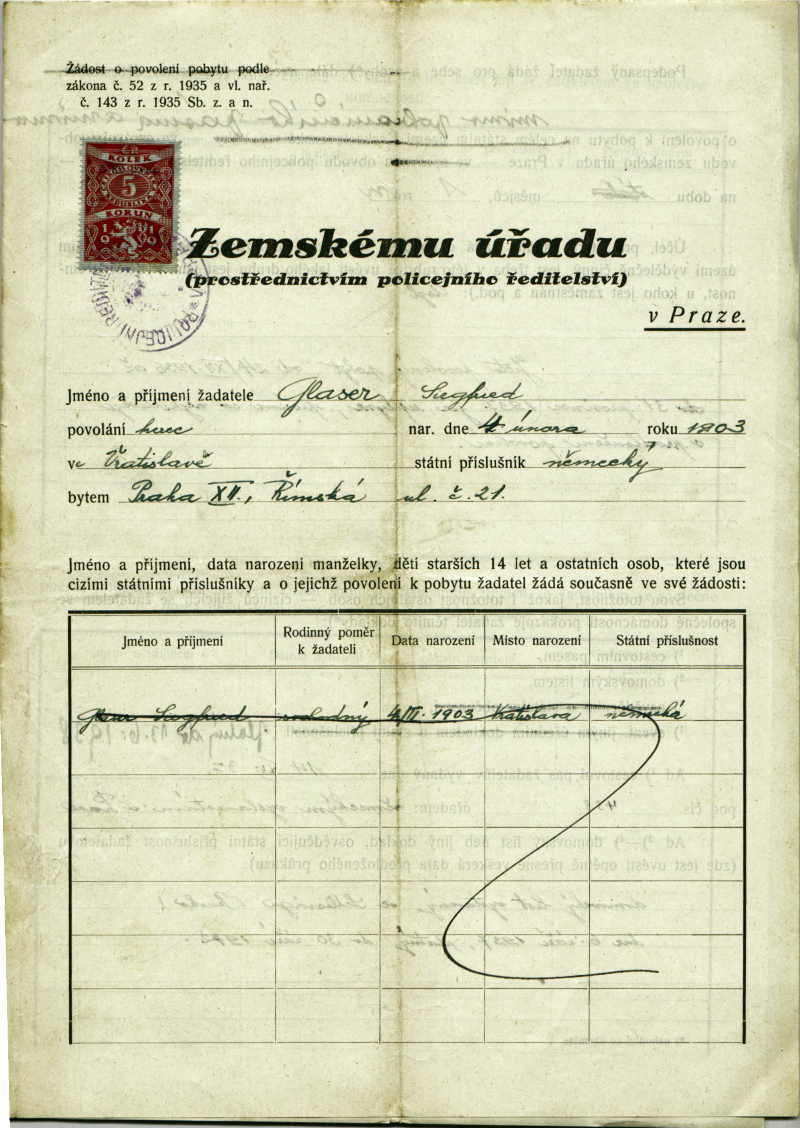 Žádost o povolení pobytu podle
zákona č. 52 z r. 1935 a vl. nař.
č. 143 z r. 1935 Sb. z. a n.
KOLEK
5
KORUN
Zemskému úřadu
(prostřednictvím policejního ředitelství)
v Praze.
Jméno a příjmení žadatele Glaser Siegfried
povolání herec nar. dne 4 února roku 1903
ve Vratislavě státní příslušník německý
bytem Praha XII., Římská ul. č. 21.
Jméno a příjmení, data narození manželky, dětí starších 14 let a ostatních osob, které jsou
cizími státními příslušníky a o jejichž povolení k pobytu žadatel žádá současně ve své žádosti:
Jméno a příjmení Rodinný poměr k žadateli Data narození Místo narození Státní příslušnost
Glaser Siegfried 4/II. 1903 Vratislava německá